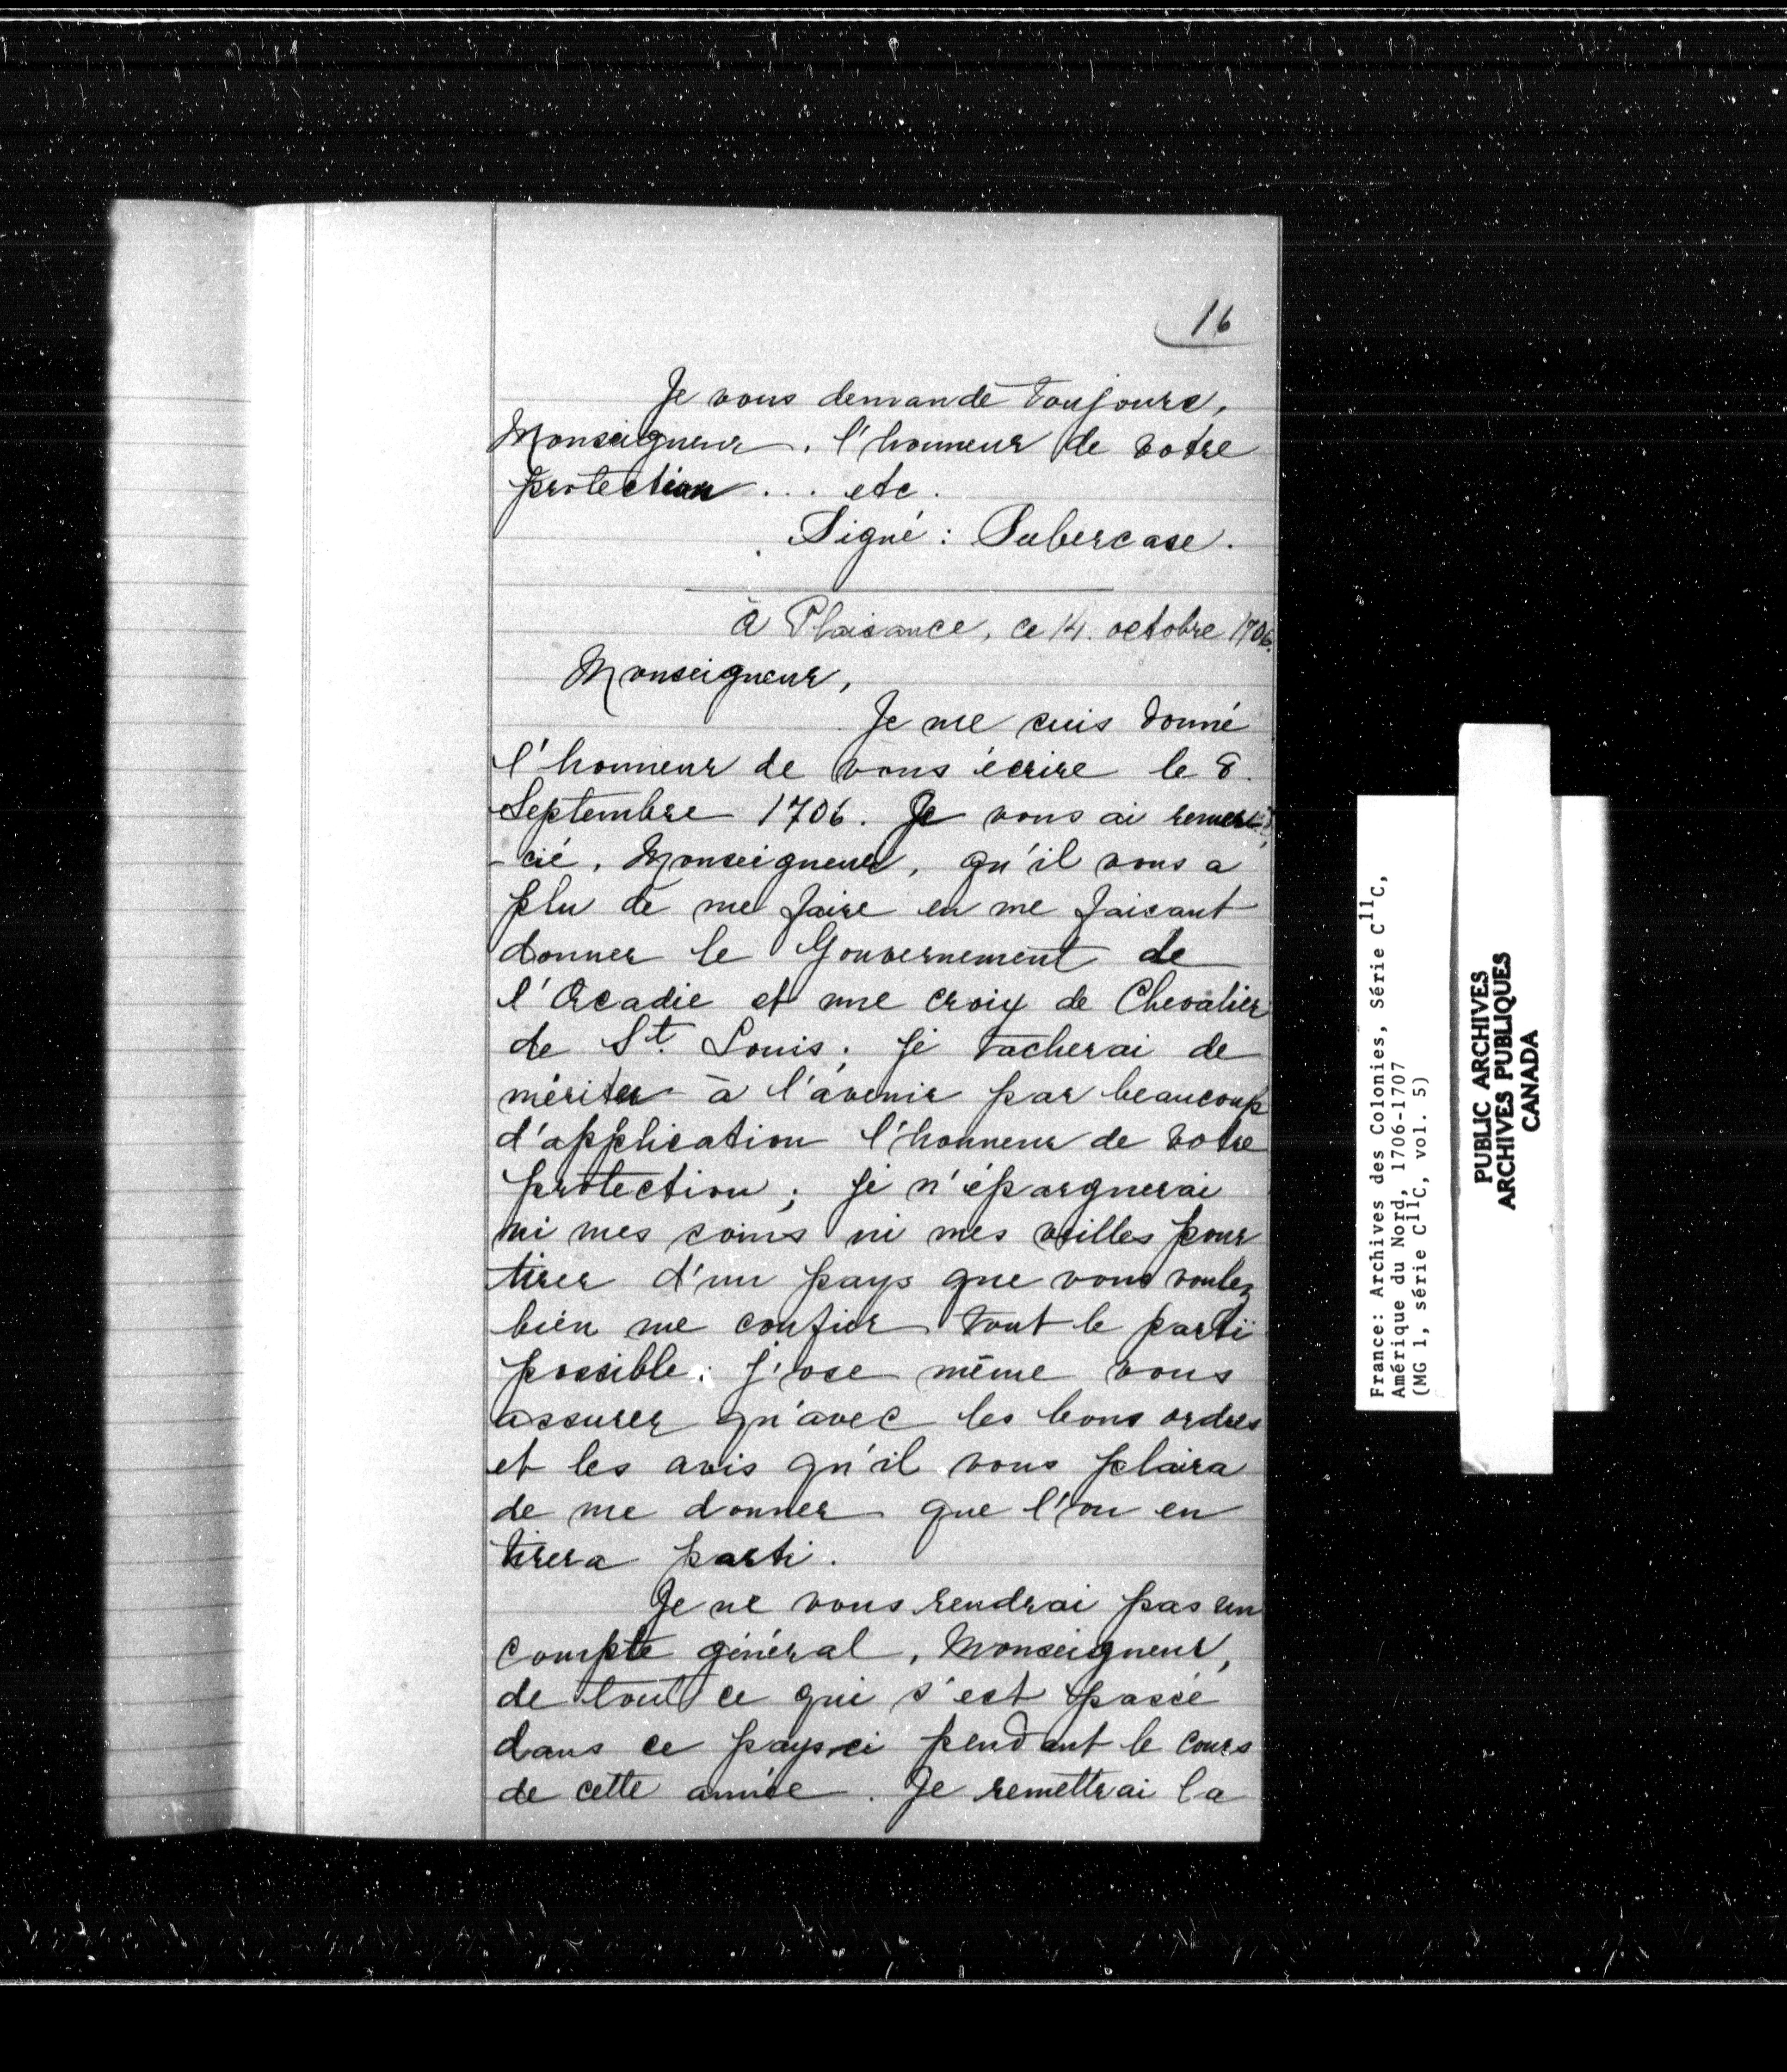 16
Je vous demande toujours,
Monseigneur, l'honneur de votre
protection... etc.
Signé: Subercase.
à Plaisance, ce 14. octobre 1706.
Monseigneur,
Je me suis donné
l'honneur de vous écrire le 8.
Septembre 1706. Je vous ai remer-
-cié, Monseigneur, qu'il vous a
plu de me faire en me faisant
donner le Gouvernement de
l'Acadie et une croix de Chevalier
de St. Louis; je tacherai de
mériter à l'avenir par beaucoup
d'application l'honneur de votre
protection; je n'épargnerai
ni mes soins ni mes veilles pour
tirer d'un pays que vous voulez
bien me confier tout le parti
possible: j'ose même vous
assurer qu'avec les bons ordres
et les avis qu'il vous plaira
de me donner que l'on en
tirera parti.
Je ne vous rendrai pas un
compte général, Monseigneur,
de tout ce qui s'est passé
dans ce pays-ci pendant le cours
de cette année. Je remettrai la
France: Archives des Colonies, Série C11C,
Amérique du Nord, 1706-1707
(MG 1, série C11C, vol. 5)
PUBLIC ARCHIVES
ARCHIVES PUBLIQUES
CANADA